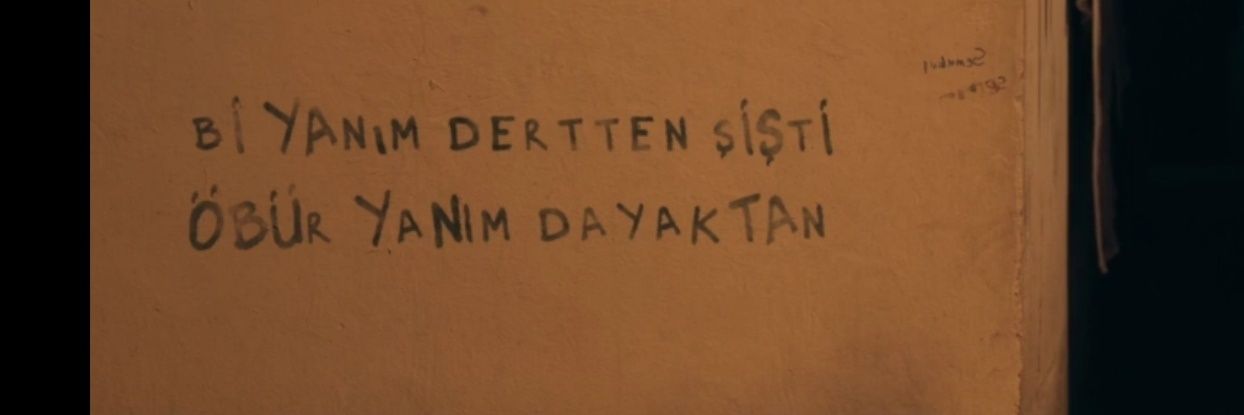 Bİ YANIM DERTTEN ŞİŞTİ
ÖBÜR YANIM DAYAKTAN